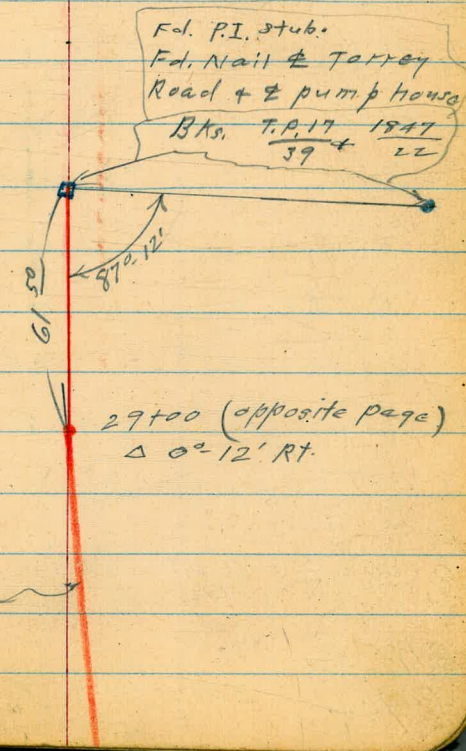 Fd. P.I. stub.
Fd. Nail ₵ Torrey
Road & ₵ pump house
Bks. T.P. 17/39 & 1847/22
87°-12'
61 50
29+00 (opposite page)
Δ 0°-12' Rt.